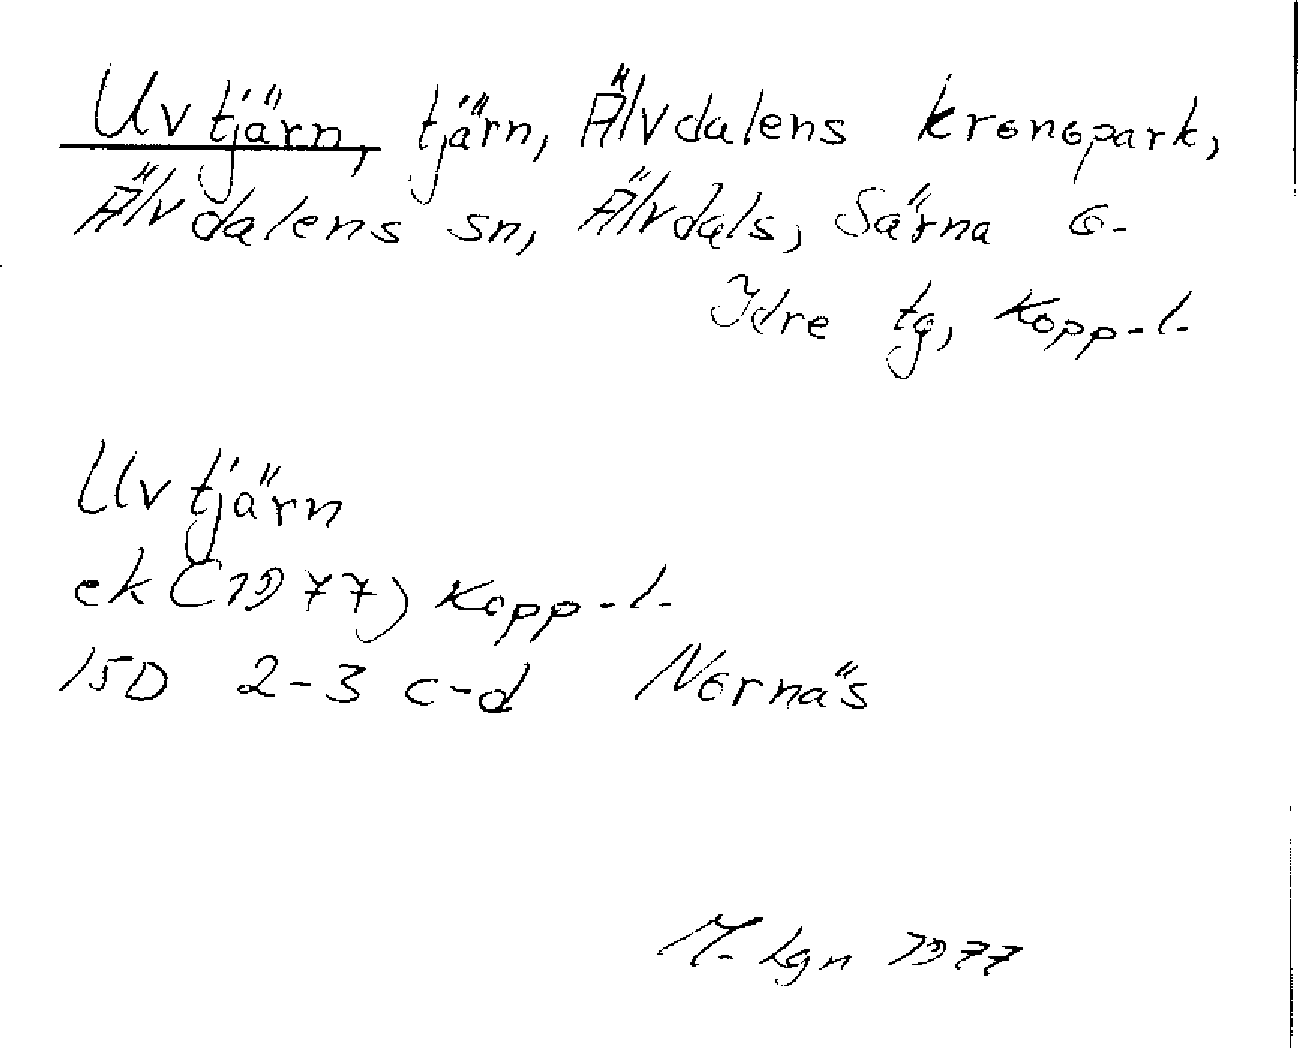 Uvtjärn, tjärn, Älvdalens kronopark,
Älvdalens sn, Älvdals, Särna o-
Idre tg, Kopp-l.
Uvtjärn
ek (1977) Kopp-l.
15D 2-3 c-d Nornäs
M. Lgn 1977